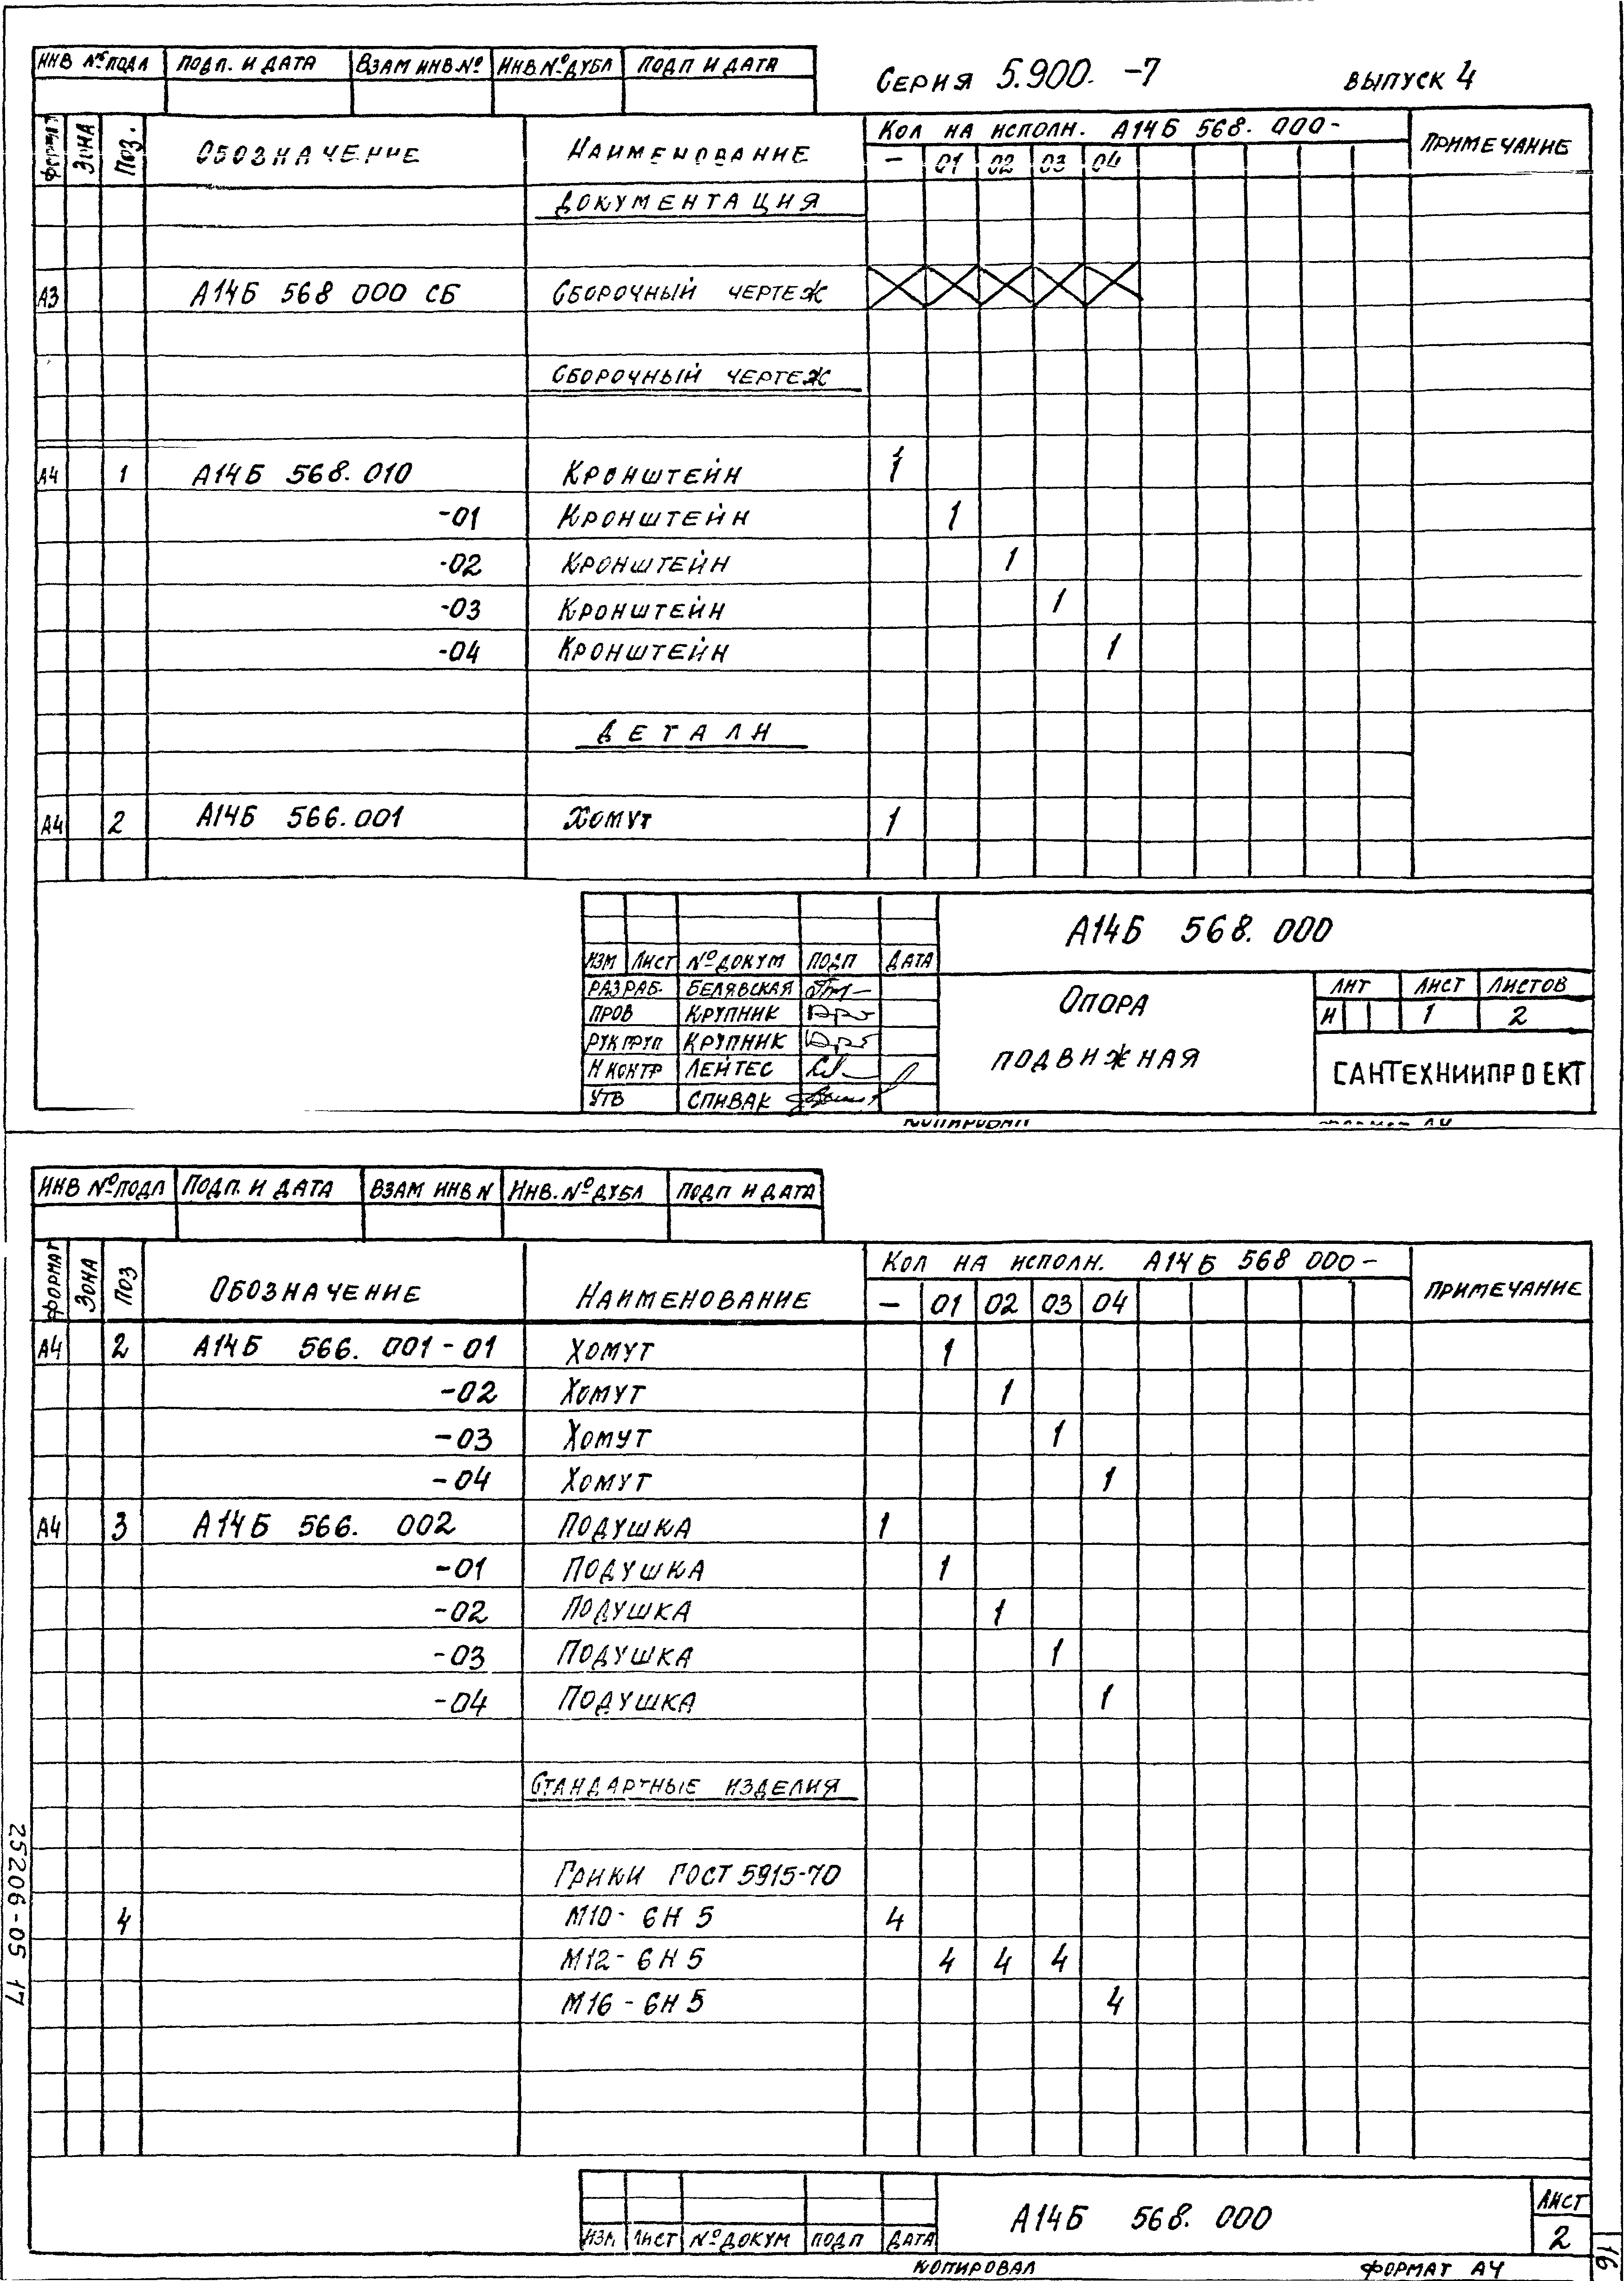 ИНВ №ПОДЛ ПОДП. И ДАТА ВЗАМ ИНВ.№ ИНВ №ДУБЛ ПОДП И ДАТА
СЕРИЯ 5.900. -7 ВЫПУСК 4
ФОРМАТ ЗОНА ПОЗ. ОБОЗНАЧЕНИЕ НАИМЕНОВАНИЕ КОЛ НА ИСПОЛН. А14Б 568. 000- ПРИМЕЧАНИЕ
- 01 02 03 04
ДОКУМЕНТАЦИЯ
А3 А14Б 568 000 СБ СБОРОЧНЫЙ ЧЕРТЕЖ
СБОРОЧНЫЙ ЧЕРТЕЖ
А4 1 А14Б 568. 010 КРОНШТЕЙН 1
-01 КРОНШТЕЙН 1
-02 КРОНШТЕЙН 1
-03 КРОНШТЕЙН 1
-04 КРОНШТЕЙН 1
ДЕТАЛИ
А4 2 А14Б 566.001 ХОМУТ 1
А14Б 568. 000
ИЗМ ЛИСТ №ДОКУМ ПОДП ДАТА
РАЗРАБ. БЕЛЯВСКАЯ
ПРОВ КРУПНИК
РУК ГРУП КРУПНИК
Н КОНТР ЛЕЙТЕС
УТВ СПИВАК
ОПОРА
ПОДВИЖНАЯ
ЛИТ ЛИСТ ЛИСТОВ
И 1 2
САНТЕХНИИПРОЕКТ
КОПИРОВАЛ ФОРМАТ А4
ИНВ №ПОДЛ ПОДП. И ДАТА ВЗАМ ИНВ N ИНВ. №ДУБЛ ПОДП И ДАТА
ФОРМАТ ЗОНА ПОЗ ОБОЗНАЧЕНИЕ НАИМЕНОВАНИЕ КОЛ НА ИСПОЛН. А14Б 568 000- ПРИМЕЧАНИЕ
- 01 02 03 04
А4 2 А14Б 566. 001-01 ХОМУТ 1
-02 ХОМУТ 1
-03 ХОМУТ 1
-04 ХОМУТ 1
А4 3 А14Б 566. 002 ПОДУШКА 1
-01 ПОДУШКА 1
-02 ПОДУШКА 1
-03 ПОДУШКА 1
-04 ПОДУШКА 1
СТАНДАРТНЫЕ ИЗДЕЛИЯ
ГАЙКИ ГОСТ 5915-70
4 М10-6Н 5 4
М12-6Н 5 4 4 4
М16-6Н 5 4
ИЗМ ЛИСТ №ДОКУМ ПОДП ДАТА
А14Б 568. 000
ЛИСТ
2
КОПИРОВАЛ ФОРМАТ А4
25206-05 17
16